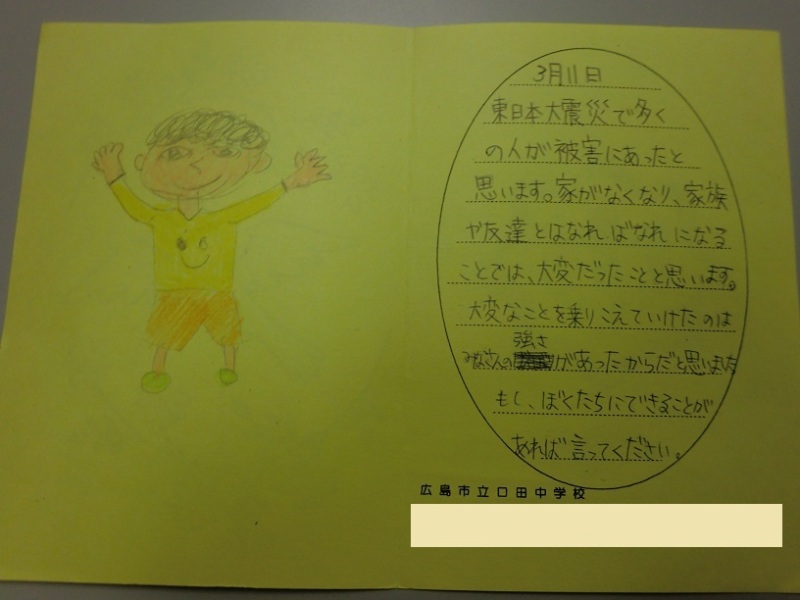 3月11日
東日本大震災で多く
の人が被害にあったと
思います。家がなくなり、家族
や友達とはなればなれになる
ことでは、大変だったことと思います。
大変なことを乗りこえていけたのは
強さ
みなさんの があったからだと思いました
もし、ぼくたちにできることが
あれば言ってください。
広島市立口田中学校